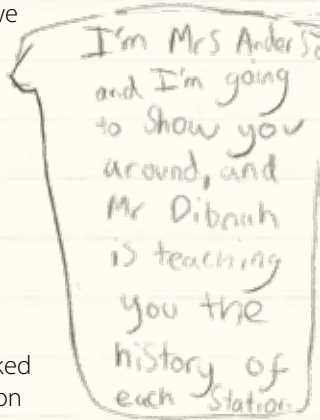 I'm Mrs
and I'm going
to Show you
around, and
Mr Dibnah
is teaching
you the
history of
each Station